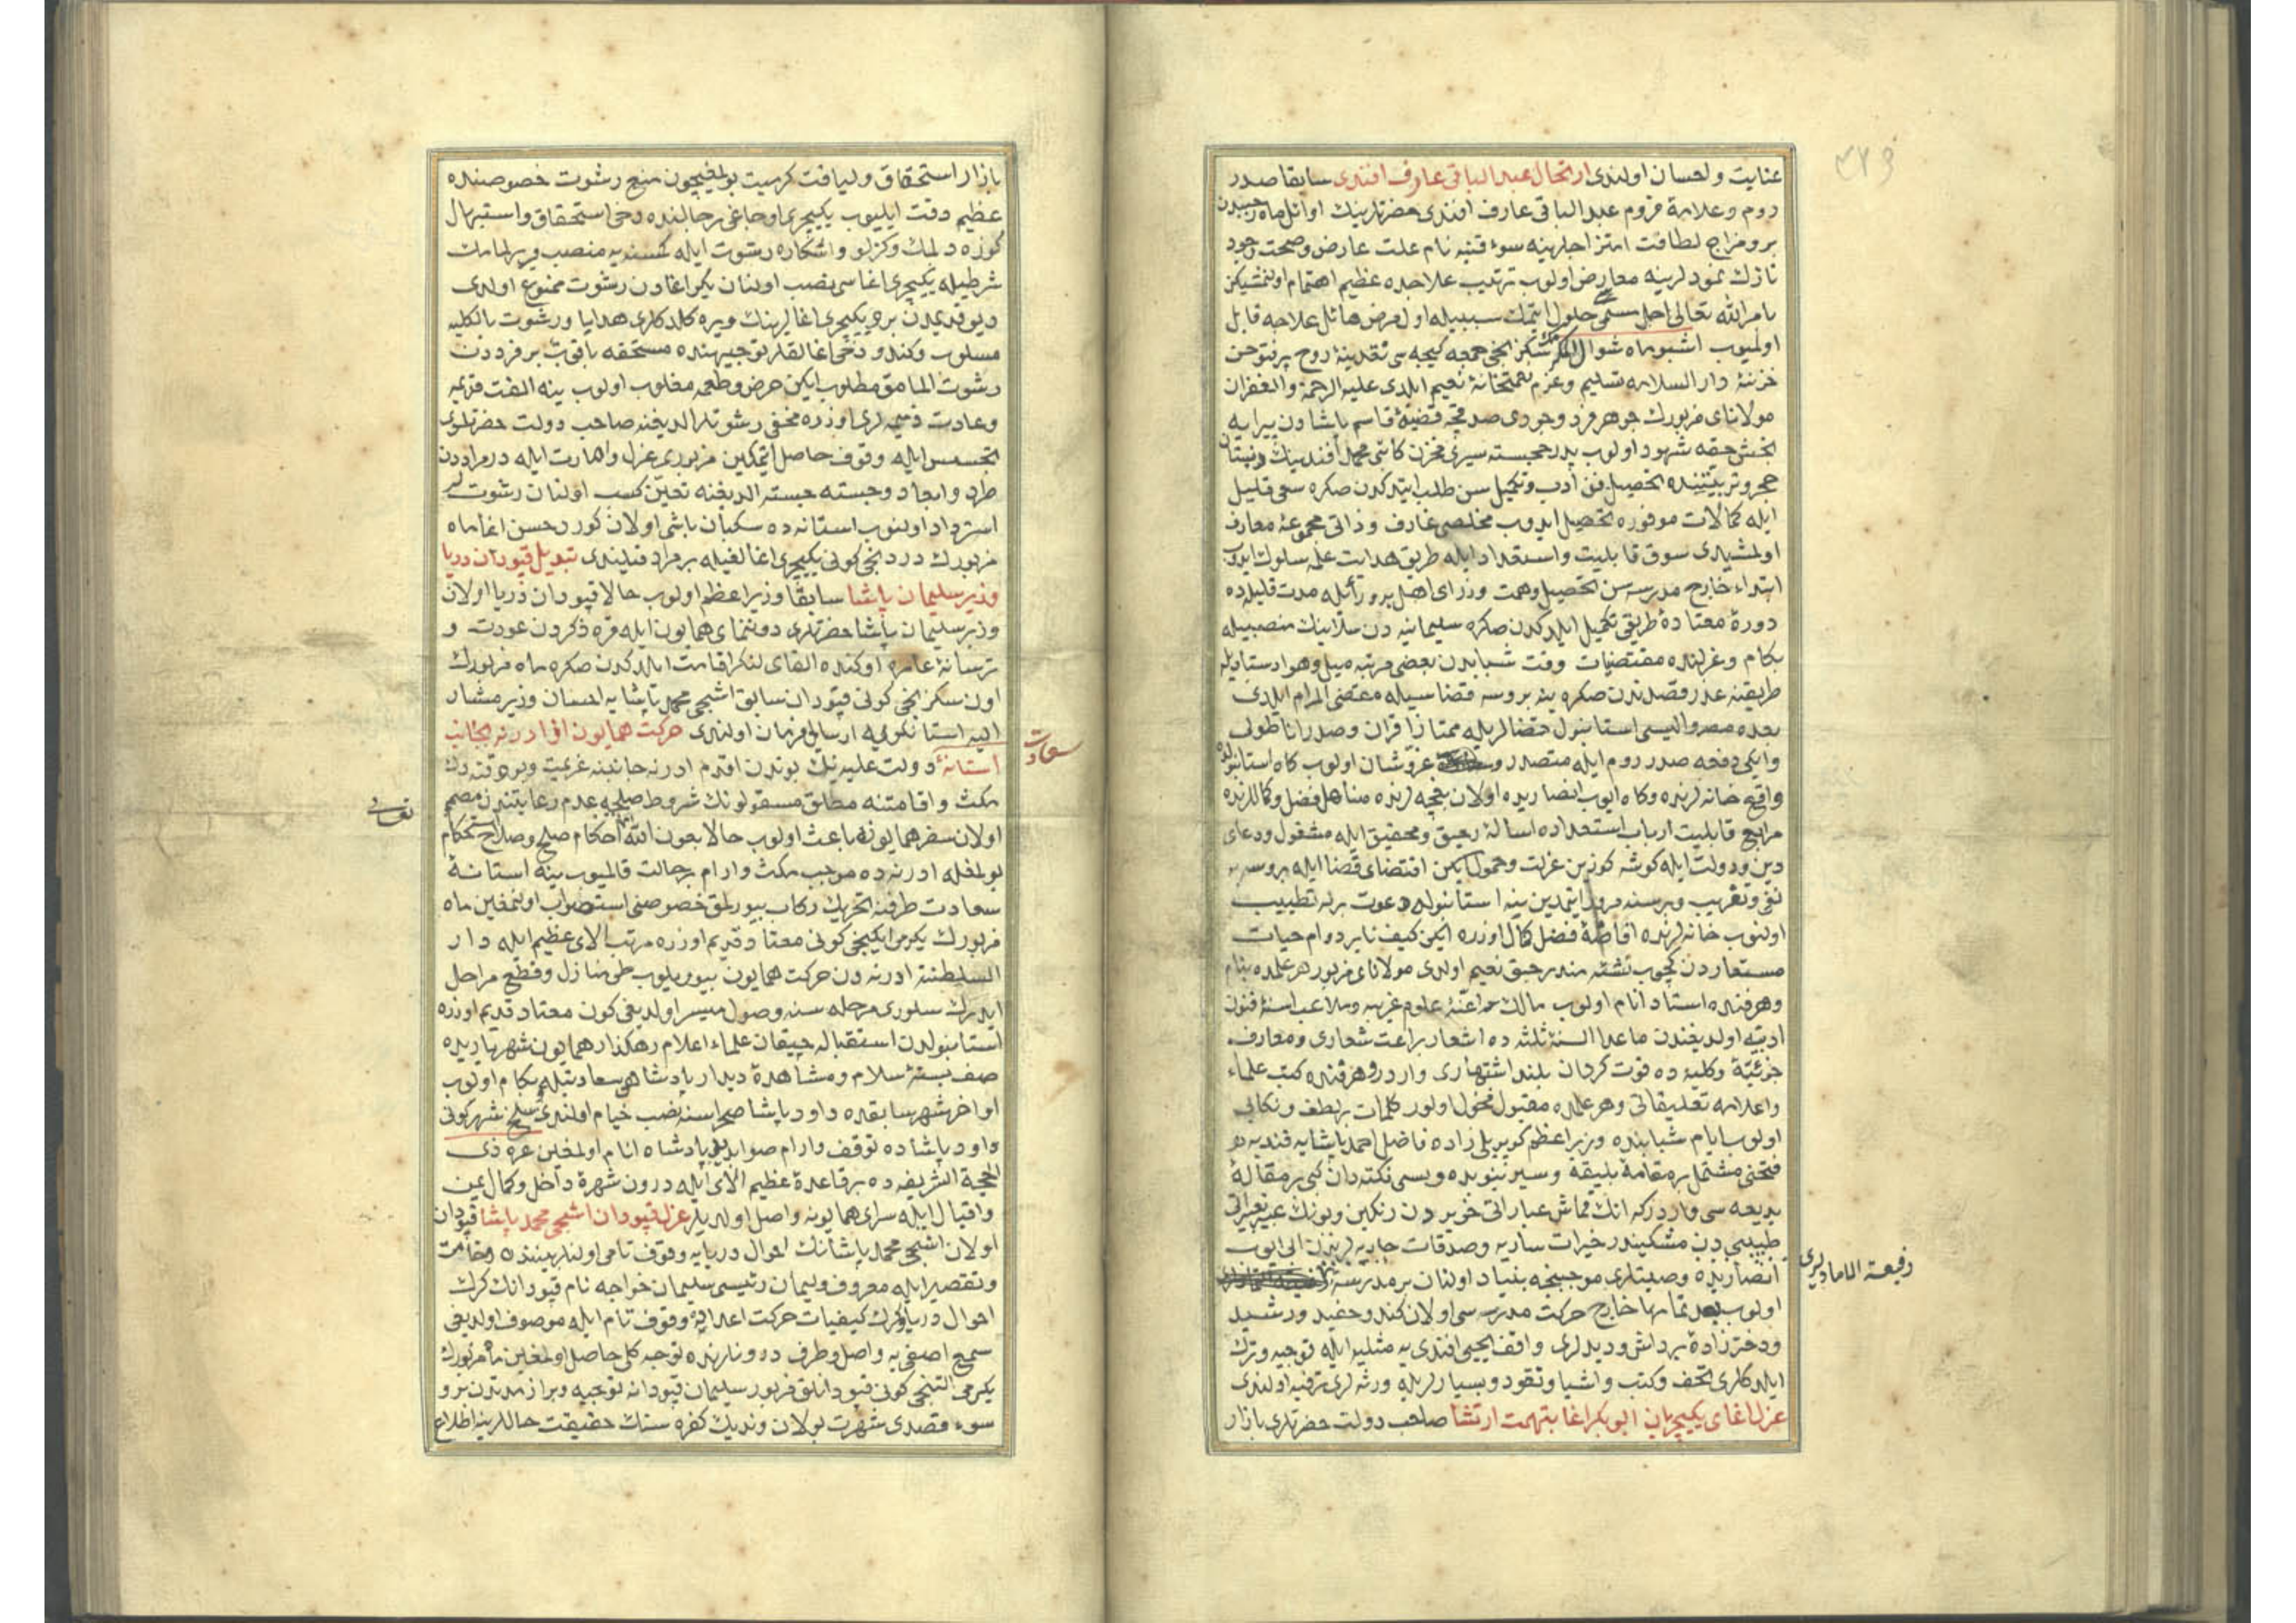 عنايت و احسان اولندى ارتحال عبد الباقى عارف افندى سابقا صدر
روم و علامۀ مزبوم عبد الباقى عارف افندى حضرتلرينك اوائل ماه رجبدن
برو مزاج لطافت امتزاجلرينه سوء قنيه نام علت عارض و صحت وجود
نازك نمودلرينه معارض اولوب ترتيب علاجده عظيم اهتمام اولنمشيكن
بامر الله تعالى اجل مسمى حلول ايتمك سببيله اول مرض هائل علاجه قابل
اولميوب اشبو ماه شوال المكرمك سكزنجى جمعه كيجه سى نقدينۀ روح پرفتوحن
خزنۀ دار السلامه تسليم و عزم نعمتخانۀ نعيم ايلدى عليه الرحمة والغفران
مولاناى مزبورك جوهر فرد وجودى صدفچۀ قضيۀ قاسم پاشادن پيرايه
بخش حقۀ شهود اولوب پدر خجسته سيرى مخزن كاتبى محمد افندينك
حجر و تربيتنده تحصيل فن ادب و تكميل سن طلب ايتدكدن صكره سعى قليل
ايله كمالات موفوره تحصيل ايدوب مخلصى عارف و ذاتى مجموعۀ معارف
اولمشيدى سوق قابليت و استعداد ايله طريق هدايت علمه سلوك ايدوب
ابتداء خارج مدرسه سن تحصيل و همت وزراى اهل پرور ايله مدت قليله ده
دورۀ معتادۀ طريقى تكميل ايلدكدن صكره سليمانيه دن سلانيك منصبيله
بكام و عزلنده مقتضيات وقت شبابدن بعضى مرتبه ميل و هوا
طريقنه عدر قصدندن صكره ينه بروسه قضاسيله مقتضى المرام ايلدى
بعده مصر و الىسى استانبول قضالريله ممتاز اقران و صدر اناطولى
وايكى دفعه صدر روم ايله متصدر و عز و شان اولوب كاه استانبولده
واقع خانه لرنده و كاه ايوب انصاريده اولان بغچه لرنده مناهل فضل و كماللرنده
مراجع قابليت ارباب استعداده اسالۀ رحيق و تحقيق ايله مشغول و دعاى
دين و دولت ايله كوشه كزين عزلت و خمول ايكن اقتضاى قضا ايله بروسه يه
نفى و تغريب و بر سنه مرور ايتمدين ينه استانبوله دعوت برله تطييب
اولنوب خانه لرنده افاضۀ فضل كمال اوزره ايكن كيف نابر دوام حيات
مستعاردن كچوب نشئه مند رحيق نعيم اولدى مولاناى مزبور هر علمده بنام
و هر فنده استاد انام اولوب مالك اعنۀ علوم غريبه و ملاعب اسنۀ فنون
ادبيه اولديغندن ماعدا السنۀ ثلثه ده اشعار براعت شعارى و معارف
جزئيه و كليه ده قوت كردان بلند اشتهارى واردر و هر فنده كتب علماء
واعلامه تعليقاتى و هر علمده مقبول فحول اولور كلمات پر لطف و نكاتى
اولوب ايام شبابنده وزير اعظم كوپريلى زاده فاضل احمد پاشايه قنديه
فتحنى مشتمل بر مقامۀ بليغه و سير نبويده و يسى نكته دان كبى بر مقالۀ
بديعه سى واردركه انك قماش عباراتى حريردن رنكين و بونك عبير تعبيراتى
طيب دن مشكيندر خيرات ساريه و صدقات جاريه لرندن ابى ايوب
انصاريده وصيتلرى موجبنجه بنياد اولنان بر مدرسۀ
رفيعة العمادلرى
اولوب بعد تمامها خارج حركت مدرسه سى اولان كندو حفيد و رشيد
و دخترزادۀ پر دانش و ديدلرى واقف يحيى افندى يه مثليله ايله توجيه و ترك
ايلدكلرى تحف و كتب و اشيا و نقود و بسيارلريله ورثه لرى ترفيه اولندى
عزل اغاى يكيچريان ابو بكر اغا بتهمت ارتشا صاحب دولت حضرتلرى بازار
بازار استحقاق و لياقت كرميت بولمغيچون منع رشوت خصوصنده
عظيم دقت ايليوب يكيچرى اوجاغى رجالنده دخى استحقاق و استيهال
كوزه دلمك و كزلو و اشكاره رشوت ايله كمسنه يه منصب ويرلمامك
شرطيله يكيچرى اغاسى نصب اولنان بكر اغادن رشوت ممنوع اولدى
ديو قديمدن برو يكيچرى اغالرينك ويره كلدكلرى هدايا و رشوت بالكليه
مسلوب و كندو دخى اغالقلر توجيهنده مستحقه باقوب بر فرددن
رشوت المامق مطلوب ايكن حرص و طمعه مغلوب اولوب ينه الفت قديمه
و عادت ذميمه لرى اوزره مخفى رشوتلر الديغنه صاحب دولت حضرتلرى
تجسس ايله وقوف حاصل ايتمكين مزبورى عزل و اهانت ايله در مراددن
طرد و ابعاد و جسته جسته الديغنه تعين كسب اولنان رشوتلر
استرداد اولنوب استانه ده سكبان باشى اولان كور حسن اغا ماه
مزبورك دردنجى كونى يكيچرى اغالغيله بر مراد قيلندى تبديل قپودان دريا
وزير سليمان پاشا سابقا وزير اعظم اولوب حالا قپودان دريا اولان
وزير سليمان پاشا حضرتلرى دوننماى همايون ايله قره دكزدن عودت و
ترسانۀ عامره اوكنده القاى لنكر اقامت ايلدكدن صكره ماه مزبورك
اون سكزنجى كونى قپودان سابق اشجى محمد پاشايه احسان وزير مشار
اليه استانكويه ارسالى فرمان اولندى حركت همايون از ادرنه بجانب
سعادت
استانۀ دولت عليه نك بوندن اقدم ادرنه جانبنه عزيمت و بر وقته دك
مكث و اقامتنه مطلق مسقولونك شروط صلحيه عدم رعايتندن مصمم
اولان سفر همايونه باعث اولوب حالا بعون الله احكام صلح و صلاح استحكام
بولمغله ادرنه ده موجب مكث و ارام بر حالت قالميوب ينه استانۀ
سعادت طرفنه تحريك ركاب بيورلمق خصوصنى استصواب اولنمغين ماه
مزبورك يكرمى ايكنجى كونى معتاد قديم اوزره مرتب الاى عظيم ايله دار
السلطنۀ ادرنه دن حركت همايون بيوريلوب طى منازل و قطع مراحل
ايدرك سلورى مرحله سنه وصول ميسر اولديغى كون معتاد قديم اوزره
استانبولدن استقباله چيقان علماء اعلام رهكذار همايون شهرياريده
صف بستۀ سلام و مشاهدۀ ديدار پادشاهى سعادتيله بكام اولوب
اواخر شهر سابقده داود پاشا صحراسنه نصب خيام اولندى سلخ شهر كونى
داود پاشاده توقف و ارام صوابديد پادشاه انام اولمغين غرۀ ذى
الحجة الشريفه ده بر قاعدۀ عظيم الاى ايله درون شهره داخل و كمال يمن
و اقبال ايله سراى همايونه واصل اولديلر عزل قپودان اشجى محمد پاشا قپودان
اولان اشجى محمد پاشانك احوال دريايه وقوف تامى اولنلر بيننده
و تقصير ايله معروف و ليمان رئيسى سليمان خواجه نام قپودانك كرك
احوال دريا و كرك كيفيات حركت اعدايه وقوف تام ايله موصوف اولديغى
سمع اصغى يه واصل و طرف درونلرنده توجه كلى حاصل اولمغين ماه مزبورك
يكرمى التنجى كونى قپودانلق مزبور سليمان قپودانه توجيه و براز مدتدن برو
سوء قصدى شهرت بولان ونديك كفره سنك حقيقت حاللرينه اطلاع